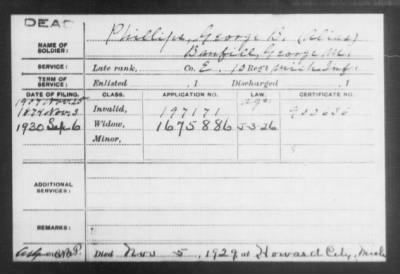 DEAD
Phillips, George B. (Alias)
NAME OF SOLDIER: Banfill, George M.
SERVICE: Late rank, Co. E, 10 Reg't Mich Inf.
TERM OF SERVICE: Enlisted , 1 Discharged , 1
DATE OF FILING. CLASS. APPLICATION NO. LAW. CERTIFICATE NO.
1907 Nov 25
1874 Nov. 3 Invalid, 197171
1930 Sep 6 Widow, 1675886 5-3-26
Minor,
ADDITIONAL SERVICES:
REMARKS:
Died Nov 5, 1929 at Howard City, Mich